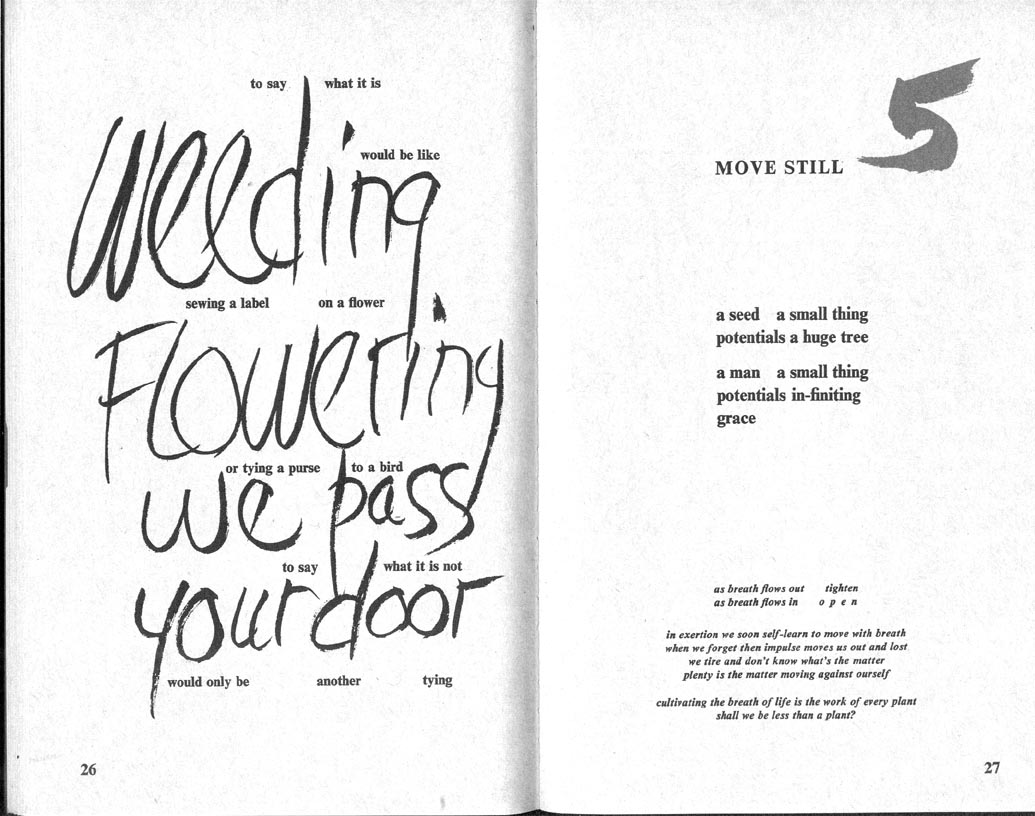 to say what it is
weeding
would be like
sewing a label on a flower
Flowering
or tying a purse to a bird
we pass
to say what it is not
your door
would only be another tying
26
5
MOVE STILL
a seed a small thing
potentials a huge tree
a man a small thing
potentials in-finiting
grace
as breath flows out tighten
as breath flows in o p e n
in exertion we soon self-learn to move with breath
when we forget then impulse moves us out and lost
we tire and don't know what's the matter
plenty is the matter moving against ourself
cultivating the breath of life is the work of every plant
shall we be less than a plant?
27